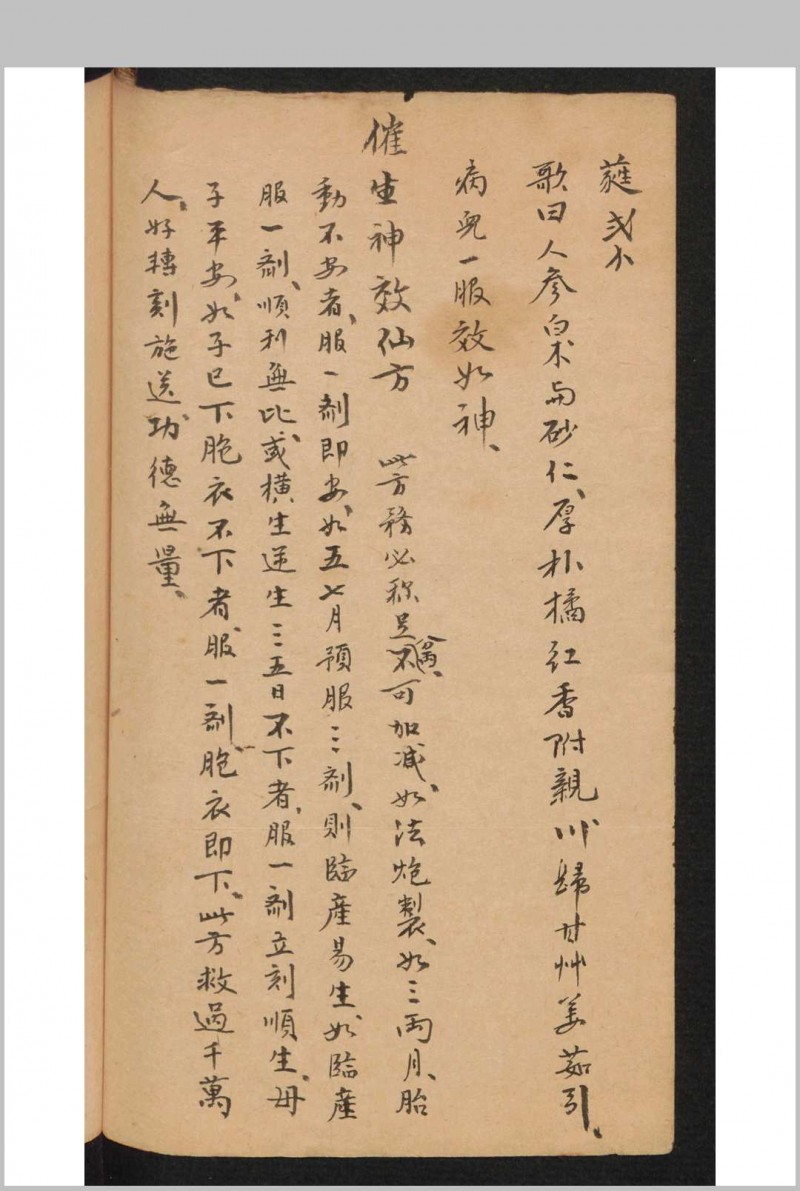 蓰弐小
歌曰人参枲朩与砂仁、厚朴橘红香附親川歸甘艸姜茹引、
病兔一服效如神、
催生神效仙方 此方務必称足分両、不可加减、如法炮製、如三両月、胎
動不安者、服一剤即安、如五七月預服三剤、則臨產易生、如臨產
服一剤、順利無比、或横生逆生三五日不下者、服一剤立刻順生、母
子平安、如子已下胞衣不下者、服一剤胞衣即下、此方救过千萬
人、好轉刻施送、功德無量、